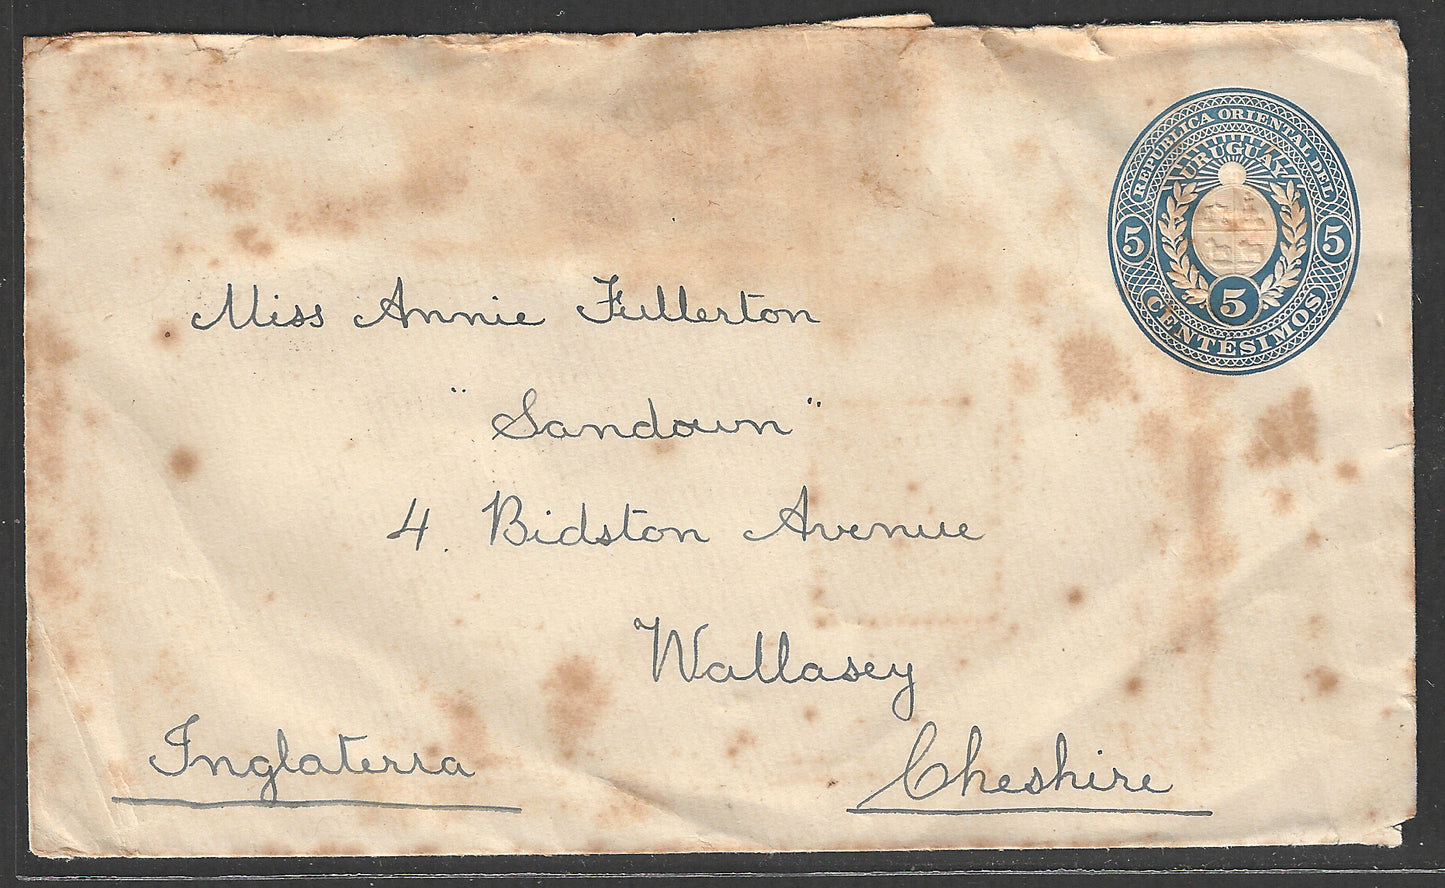 REPUBLICA ORIENTAL DEL
URUGUAY
5 5
5
CENTÉSIMOS
Miss Annie Fullerton
"Sandown"
4. Bidston Avenue
Wallasey
Inglaterra Cheshire